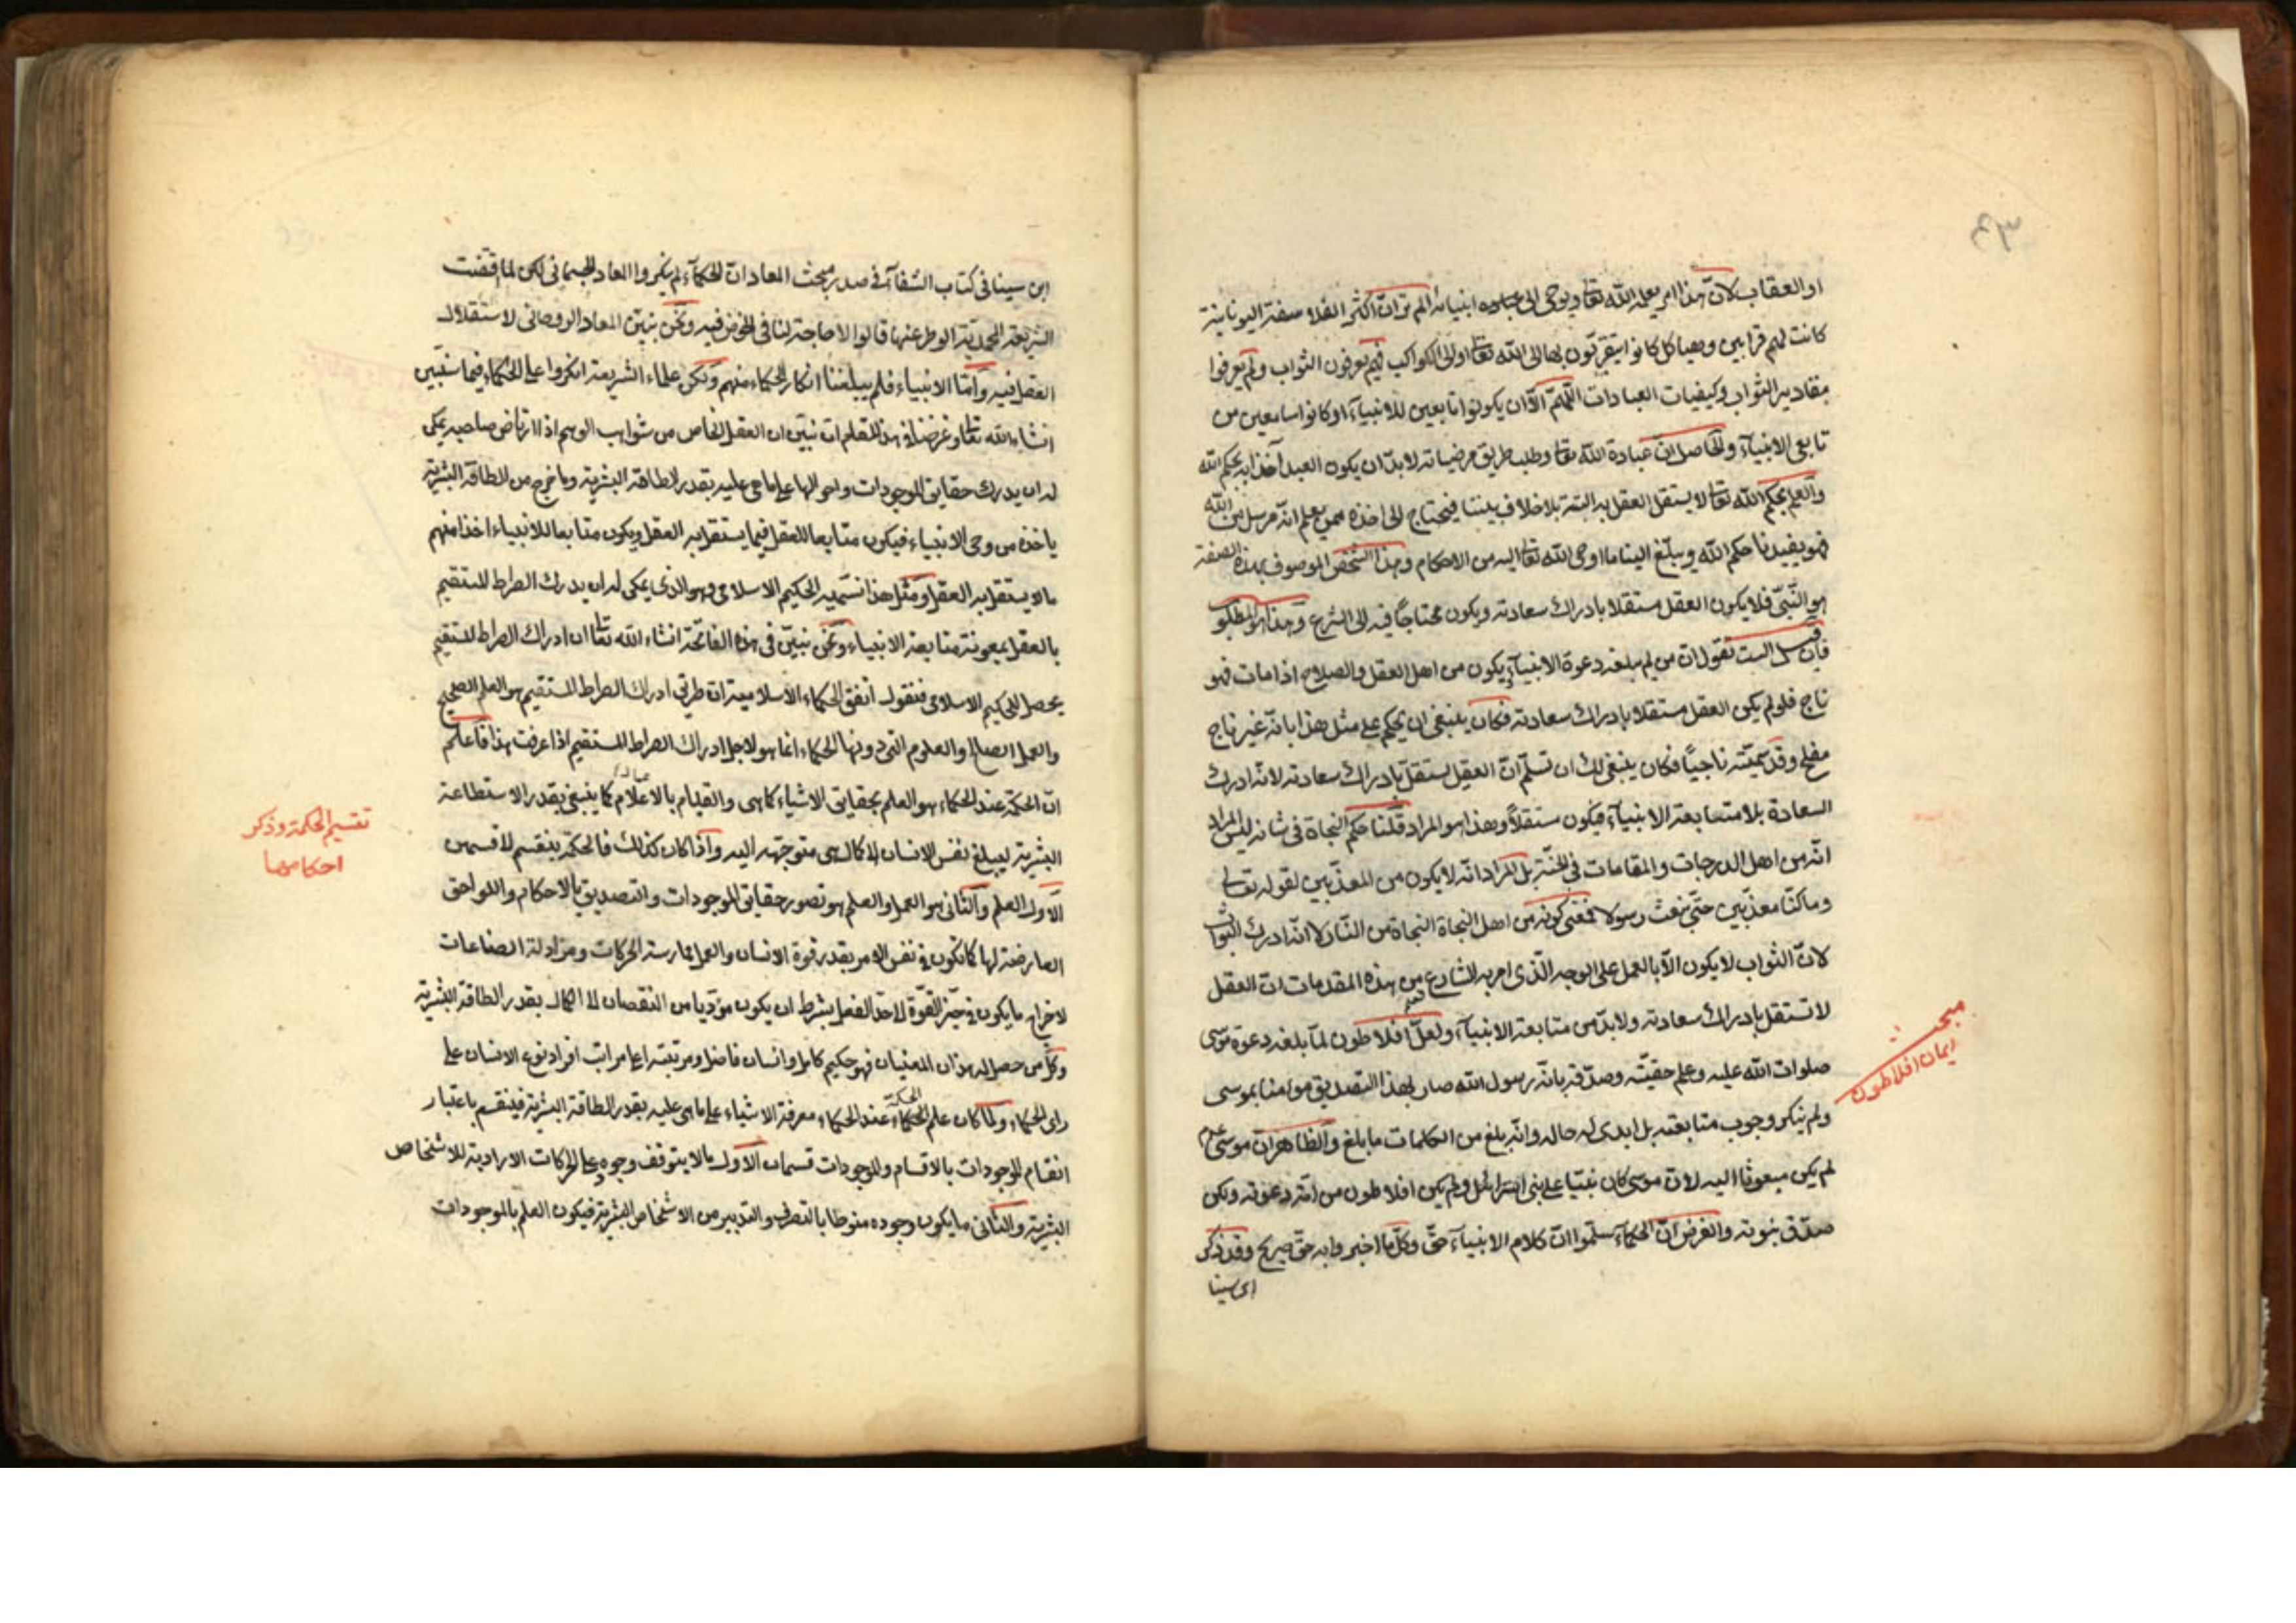 او العقاب لانّ هذا امر يعلمه الله تعالى ويوحى الى عباده انبيائه الم تر انّ اكثر الفلاسفة اليونانية
كانت لهم قرابين وهياكل كانوا يتقربّون بها الى الله تعالى او الى الكواكب فهم يعرفون الثواب ولم يعرفوا
مقادير الثواب وكيفيات العبادات اللّهمّ الّا ان يكونوا تابعين للانبيآء او كانوا سامعين من
تابعى الانبيآء والحاصل انّ عبادة الله تعالى وطلب طريق مرضياته لابدّ ان يكون العبد آخذا به بحكم الله
والعلم بحكم الله تعالى لا يستقل العقل به البتة بلا خلاف بيننا فيحتاج الى اخذه ممن يعلم انّه مرسل من الله
فهو يفيدنا حكم الله ويبلّغ الينا ما اوحى الله تعالى اليه من الاحكام وهذا الشخص الموصوف بهذه الصفة
هو النّبىّ فلا يكون العقل مستقلا بادراك سعادته ويكون محتاجاً فيه الى الشرع وهذا هو المطلوب
فان قيل الست تقول ان من لم يبلغه دعوة الانبيآء ويكون من اهل العقل والصلاح اذا مات فهو
ناج فلو لم يكن العقل مستقلا بادراك سعادته فكان ينبغى ان يحكم على مثل هذا بانّه غير ناج
مفلح وقد سمّيته ناجياً فكان ينبغى لك ان تسلّم انّ العقل يستقلّ بادراك سعادته لانّه ادرك
السعادة بلا متابعة الانبيآء فيكون مستقلاً وهذا هو المراد قلنا حكم النجاة فى شانه ليس المراد
انّه من اهل الدرجات والمقامات فى الجنّة بل المراد انّه لا يكون من المعذّبين لقوله تعالى
وما كنّا معذّبين حتّى نبعث رسولا فمعنى كونه من اهل النجاة النجاة من النّار لا انّه ادرك الثواب
لانّ الثواب لا يكون الّا بالعمل على الوجه الّذى امر به الشارع من هذه المقدمات انّ العقل
لا تستقل بادراك سعادته ولا بدّ من متابعة الانبيآء ولعلّ افلاطون لمّا بلغه دعوة موسى
صلوات الله عليه وعلم حقيّته وصدّقه بانّه رسول الله صار بهذا التصديق مؤمنا بموسى
ولم ينكر وجوب متابعته بل ابدى له حاله وانّه بلغ من الكلمات ما بلغ والظاهر انّ موسى عم
لم يكن مبعوثا اليه لانّ موسى كان نبيّا على بنى اسرائل ولم يكن افلاطون من امّة دعوته ولكن
صدّق نبوته والغرض انّ الحكمآء سلّموا انّ كلام الانبيآء حقّ وكلّ ما اخبروا به حقّ صريح وقد ذكر
ابن سينا
مبحث
ايمان افلاطون
ابن سينا فى كتاب الشفآء فى صدر مبحث المعاد انّ الحكمآء لم ينكروا المعاد الجسمانى لكن لما قضت
الشريعة المحمدية الوطر عنها قالوا لا حاجة لنا فى الخوض فيه ونحن نبيّن المعاد الروحانى لاستقلال
العقل فيه وامّا الانبياء فلم يبلغنا انكار الحكماء منهم ولكن علماء الشريعة انكروا على الحكماء فيما سنبيّن
انشاء الله تعالى وغرضنا فى هذا المقام ان نبيّن ان العقل الخاص من شوايب الوهم اذا ارتاض صاحبه يمكن
له ان يدرك حقايق الموجودات واحوالها على ما هى عليه بقدر الطاقة البشرية وما خرج من الطاقة البشرية
ياخذه من وحى الانبياء فيكون متابعا للعقل فيما يستقل به العقل ويكون متابعا للانبياء اخذا منهم
ما لا يستقل به العقل ومثل هذا نسميه الحكيم الاسلامى وهو الذى يمكن له ان يدرك الصراط المستقيم
بالعقل بمعونة متابعة الانبياء ونحن نبيّن فى هذه الفاتحة انشاء الله تعالى ان ادراك الصراط المستقيم
يحصل للحكيم الاسلامى فنقول اتفق الحكماء الاسلامية ان طريق ادراك الصراط المستقيم هو العلم الصحيح
والعمل الصالح والعلوم التى دونها الحكماء انما هو لاجل ادراك الصراط المستقيم اذا عرفت هذا فاعلم
انّ الحكمة عند الحكماء هو العلم بحقايق الاشياء كما هى والقيام بالاعلام كما ينبغى بقدر الاستطاعة
البشرية ليبلغ نفس الانسان الى كمال هى متوجهة اليه واذا كان كذلك فالحكمة ينقسم الى قسمين
الاول العلم والثانى هو العمل والعلم هو تصور حقايق الموجودات والتصديق بالاحكام واللواحق
العارضة لها كما تكون فى نفس الامر بقدر قوة الانسان والعمل ممارسة الحركات ومزاولة الصناعات
لاخراج ما يكون فى حيّز القوّة الى حدّ الفعل بشرط ان يكون مؤدّيا من النقصان الى الكمال بقدر الطاقة البشرية
وكلّ من حصل له هذان المعنيان فهو حكيم كامل وانسان فاضل ومرتبته اعلى مراتب افراد نوع الانسان على
راى الحكماء ولما كان علم الحكمة عند الحكماء معرفة الاشياء على ما هى عليه بقدر الطاقة البشرية فينقسم باعتبار
انقسام الموجودات بالاقسام والموجودات قسمان الاول ما لا يتوقف وجوده على الحركات الارادية للاشخاص
البشرية والثانى ما يكون وجوده منوطا بالتصرف والتدبير من الاشخاص البشرية فيكون العلم بالموجودات
تقسيم الحكمة وذكر
احكامها